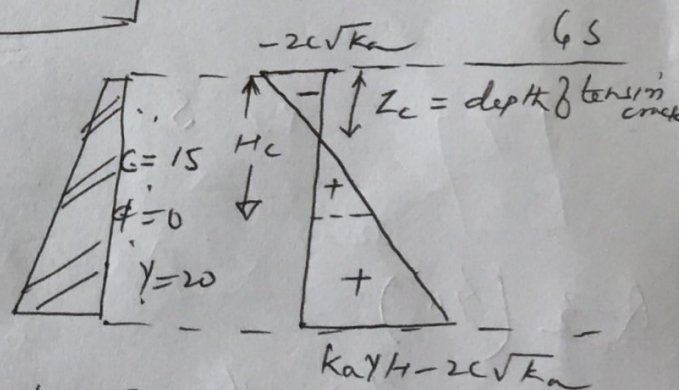 -2c√ka
GS
Zc = depth of tension crack
Hc
C = 15
ϕ = 0
γ = 20
-
+
+
kaγH-2c√ka